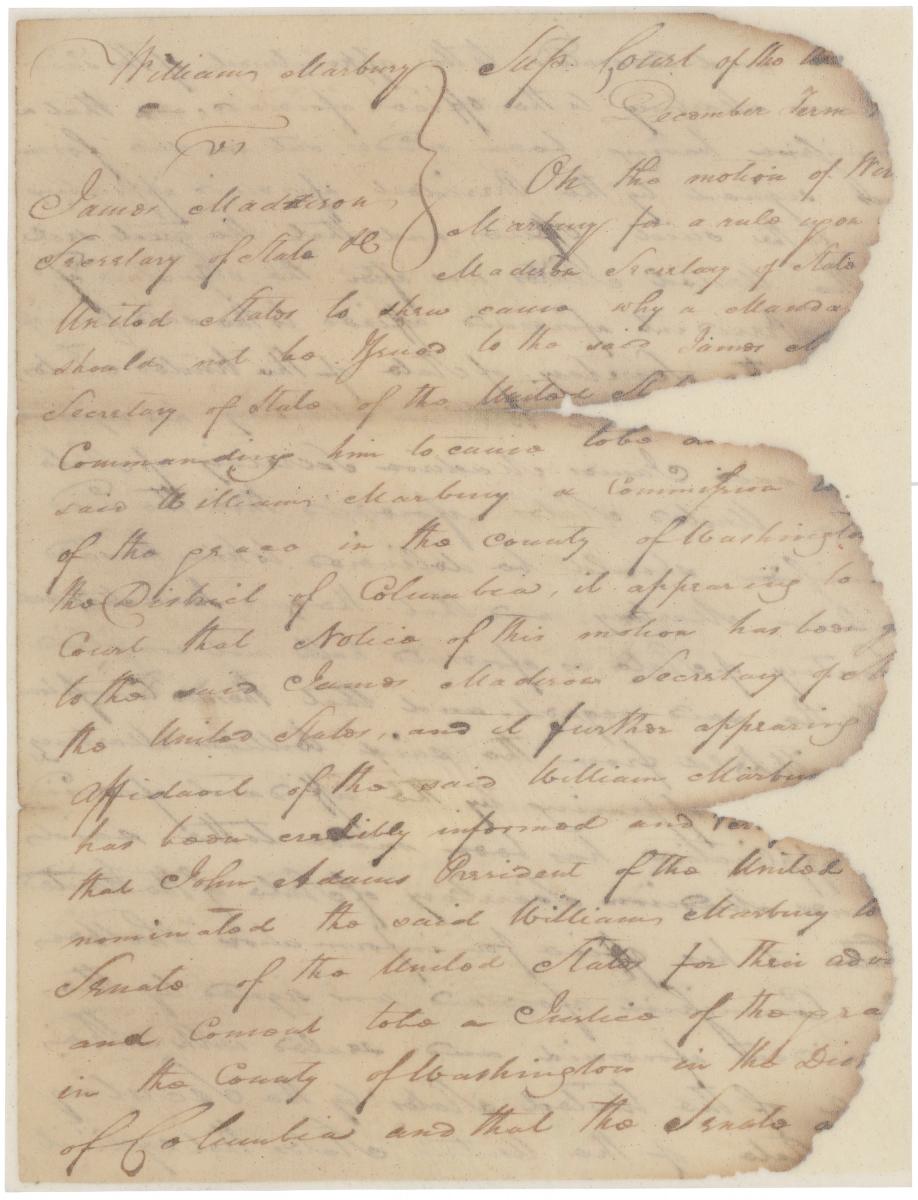 William Marbury Sup. Court of the
December Term
vs
On the motion of
James Madison
Marbury for a rule upon
Secretary of State &c
Madison Secretary of State
United States to shew cause why a Manda
should not be Issued to the said James
Secretary of State of the United St
Commanding him to cause to be
said William Marbury a Commission
of the peace in the county of Washingto
the District of Columbia, it appearing to
Court that Notice of this motion has been
to the said James Madison Secretary of
the United States, and it further appearing
affidavit of the said William Marbu
has been credibly informed and
that John Adams President of the United
nominated the said William Marbury to
Senate of the United States for their advi
and Consent to be a Justice of the pea
in the County of Washington in the Dis
of Columbia and that the Senate